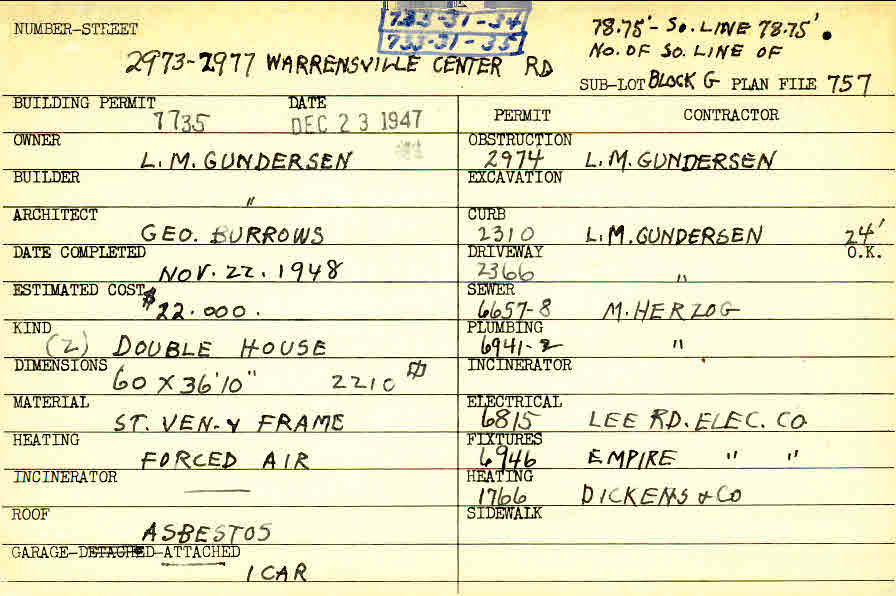 733-31-34
733-31-35
NUMBER-STREET
2973-2977 WARRENSVILLE CENTER RD
78.75'- So. LINE 78.75'.
NO. OF SO. LINE OF
SUB-LOT BLOCK G PLAN FILE 757
BUILDING PERMIT DATE
7735 DEC 23 1947
OWNER
L. M. GUNDERSEN
BUILDER
"
ARCHITECT
GEO. BURROWS
DATE COMPLETED
NOV. 22. 1948
ESTIMATED COST
$22.000.
KIND
(2) DOUBLE HOUSE
DIMENSIONS
60 X 36'10" 2210
MATERIAL
ST. VEN. & FRAME
HEATING
FORCED AIR
INCINERATOR
ROOF
ASBESTOS
GARAGE-DETACHED-ATTACHED
1 CAR
PERMIT CONTRACTOR
OBSTRUCTION
2974 L. M. GUNDERSEN
EXCAVATION
CURB
2310 L. M. GUNDERSEN 24'
DRIVEWAY O.K.
2366 "
SEWER
6657-8 M. HERZOG
PLUMBING
6941-2 "
INCINERATOR
ELECTRICAL
6815 LEE RD. ELEC. CO
FIXTURES
6946 EMPIRE " "
HEATING
1766 DICKENS & CO
SIDEWALK